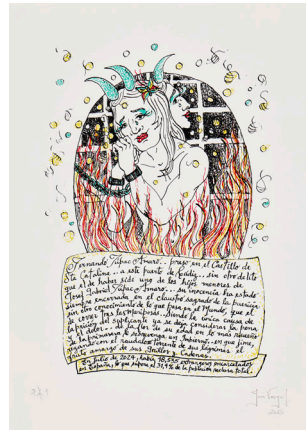 Fernando Túpac Amaro... preso en el Castillo de
Sta Catalina... a este puerto de Cádiz... sin otro delito
que el de haber sido uno de los hijos menores de
Josef Gabriel Túpac Amaro... su inocencia ha estado
siempre encerrada en el claustro sagrado de la prisión
sin otro conocimiento de lo que pasa en el Mundo, que el
de correr tras las Mariposas... Siendo la única causa de
la prisión del suplicante ya se deja considerar la pena
y el dolor... de la flor de su edad en lo más risueño
de la primavera le sobrevenga un Invierno... en que gime,
regando con el raudaloso torrente de sus lágrimas el
fruto amargo de sus Grillos y Cadenas.
En julio de 2024, había 18,535 extranjeros encarcelados
en España, lo que supone el 31,4% de la población reclusa total.